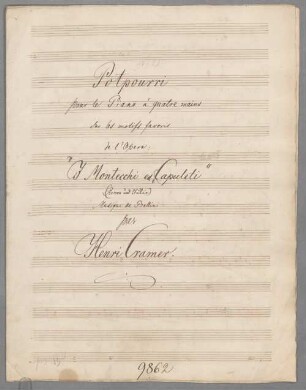 Potpourri
pour le Piano à quatre mains
sur les motifs favoris
de l'Opera:
"I Montecchi ed Capuleti"
(Romeo und Julia)
Musique de Bellini
par
Henri Cramer.
9862